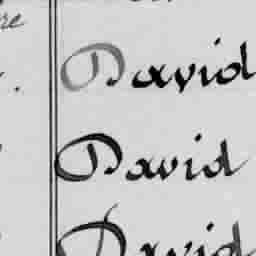 re
David
David
David